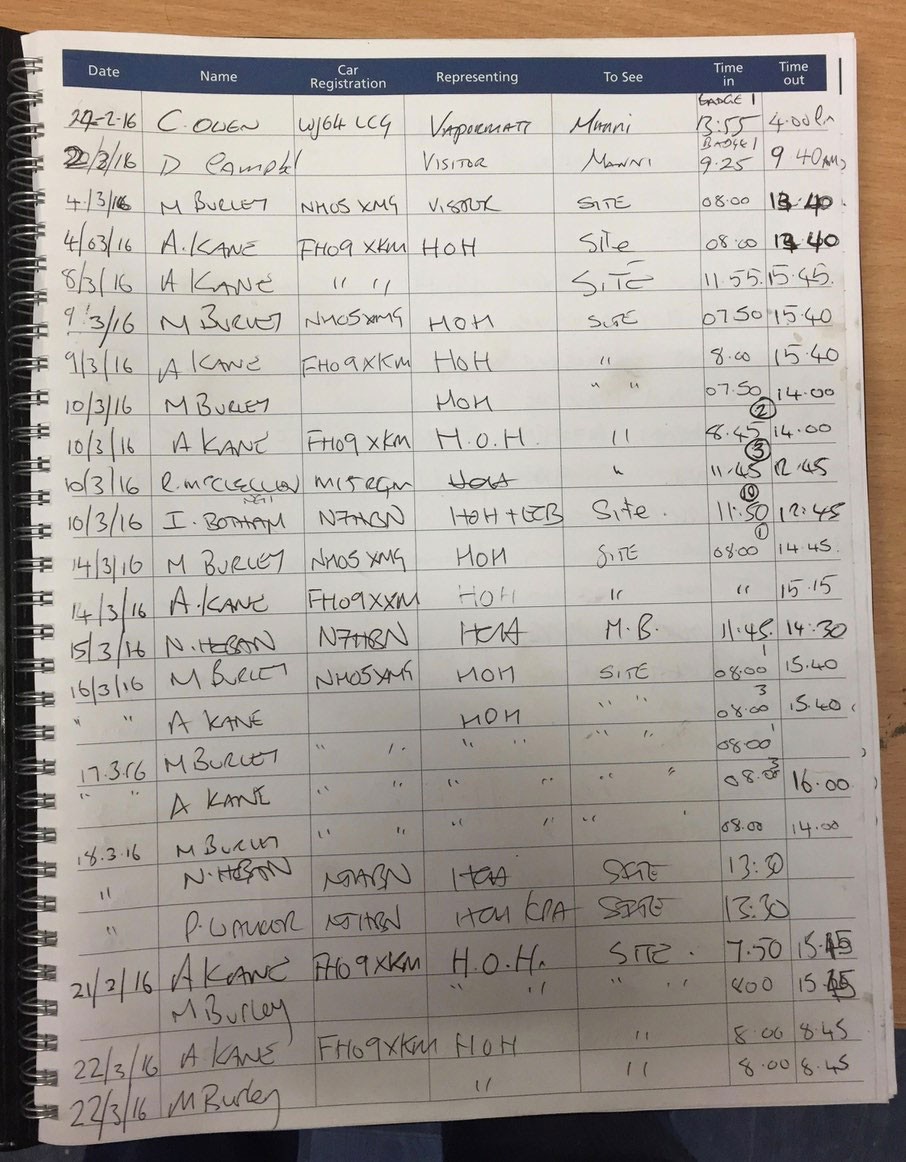 Date Name Car Registration Representing To See Time in Time out
BADGE 1
24-2-16 C. OWEN WJ64 LCG VAPORMATT Manni 13:55 4.00
BADGE 1
2/3/16 D CAMPBL VISITOR MANNI 9.25 9 40 AM
4/3/16 M BURLEY NH05 XMG VISTOUR SITE 08:00 13.40
4/03/16 A. KANE FH09 XKM HOH SITE 08:00 13 40
8/3/16 A KANE " " SITE 11.55. 15.45.
9/3/16 M BURLEY NH05XMG HOH SITE 07 50 15.40
9/3/16 A KANE FH09XKM HOH " 8.00 15.40
10/3/16 M BURLEY HOH " " 07.50 14.00
10/3/16 A KANE FH09 XKM H.O.H. " 8.45 (2) 14.00
10/3/16 R. MCCLELLAN M15RGM " 11.45 (3) 12.45
10/3/16 I. BOTHAM N7HBN HOH + Site. 11:50 (10) 12:45
14/3/16 M BURLEY NH05 XMG HOH SITE 08:00 (1) 14.45.
14/3/16 A. KANE FH09XXM HOH " " 15.15
15/3/16 N. HEBRON N7HBN M.B. 11.45. 14:30
16/3/16 M BURLEY NH05XMG HOH SITE 08:00 1 15.40
" " A KANE HOH " " 08:00 3 15.40
17.3.16 M BURLEY " " " " " " 08:00 1
" " A KANE " " " " " " 08.00 3 16.00
18.3.16 M BURLEY " " " " " " 08.00 14.00
" N. HEBRON N7HBN SITE 13:30
" P. WALKER N7HBN SITE 13:30
21/2/16 A KANE FH09XKM H.O.H. SITE. 7.50 15.45
M Burley " " " " 800 15.45
22/3/16 A KANE FH09XKM HOH " 8.00 8.45
22/3/16 M Burley " " 8.00 8.45